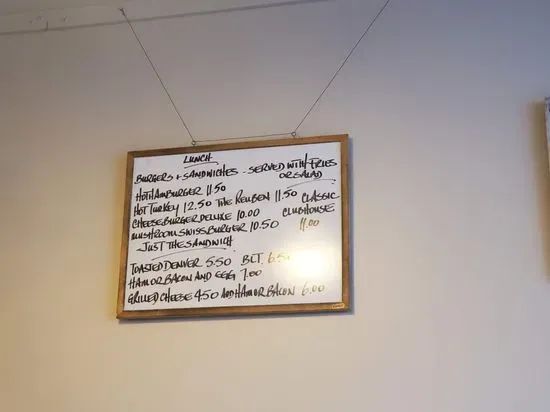 LUNCH
BURGERS + SANDWICHES - SERVED WITH FRIES
OR SALAD
HOT HAMBURGER 11.50
HOT TURKEY 12.50 THE REUBEN 11.50 CLASSIC
CHEESE BURGER DELUXE 10.00 CLUBHOUSE
MUSHROOM SWISS BURGER 10.50 11.00
- JUST THE SANDWICH
TOASTED DENVER 5.50 BLT. 6.50
HAM OR BACON AND EGG 7.00
GRILLED CHEESE 4.50 ADD HAM OR BACON 6.00